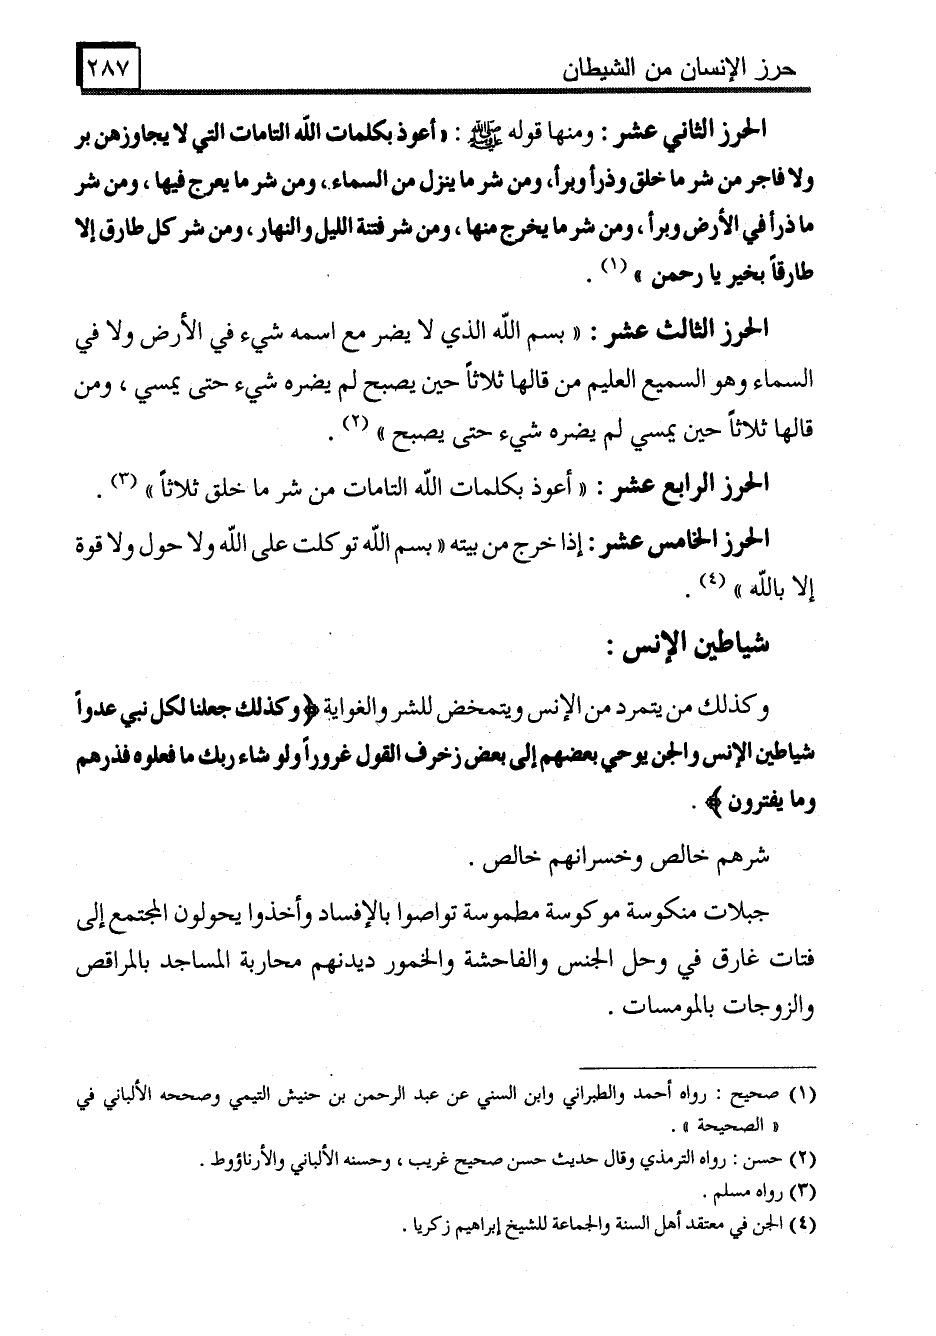 حرز الإنسان من الشيطان ٢٨٧
الحرز الثاني عشر : ومنها قوله ﷺ : « أعوذ بكلمات الله التامات التي لا يجاوزهن بر
ولا فاجر من شر ما خلق وذرأ وبرأ، ومن شر ما ينزل من السماء، ومن شر ما يعرج فيها ، ومن شر
ما ذرأ في الأرض وبرأ ، ومن شر ما يخرج منها ، ومن شر فتنة الليل والنهار ، ومن شر كل طارق إلا
طارقاً بخير يا رحمن » (١) .
الحرز الثالث عشر : « بسم الله الذي لا يضر مع اسمه شيء في الأرض ولا في
السماء وهو السميع العليم من قالها ثلاثاً حين يصبح لم يضره شيء حتى يمسي ، ومن
قالها ثلاثاً حين يمسي لم يضره شيء حتى يصبح » (٢) .
الحرز الرابع عشر : « أعوذ بكلمات الله التامات من شر ما خلق ثلاثاً » (٣) .
الحرز الخامس عشر : إذا خرج من بيته « بسم الله توكلت على الله ولا حول ولا قوة
إلا بالله » (٤) .
شياطين الإنس :
وكذلك من يتمرد من الإنس ويتمخض للشر والغواية ﴿ وكذلك جعلنا لكل نبي عدواً
شياطين الإنس والجن يوحي بعضهم إلى بعض زخرف القول غروراً ولو شاء ربك ما فعلوه فذرهم
وما يفترون ﴾ .
شرهم خالص وخسرانهم خالص .
جبلات منكوسة موكوسة مطموسة تواصوا بالإفساد وأخذوا يحولون المجتمع إلى
فتات غارق في وحل الجنس والفاحشة والخمور ديدنهم محاربة المساجد بالمراقص
والزوجات بالمومسات .
(١) صحيح : رواه أحمد والطبراني وابن السني عن عبد الرحمن بن حنيش التيمي وصححه الألباني في
« الصحيحة » .
(٢) حسن : رواه الترمذي وقال حديث حسن صحيح غريب ، وحسنه الألباني والأرناؤوط .
(٣) رواه مسلم .
(٤) الجن في معتقد أهل السنة والجماعة للشيخ إبراهيم زكريا .